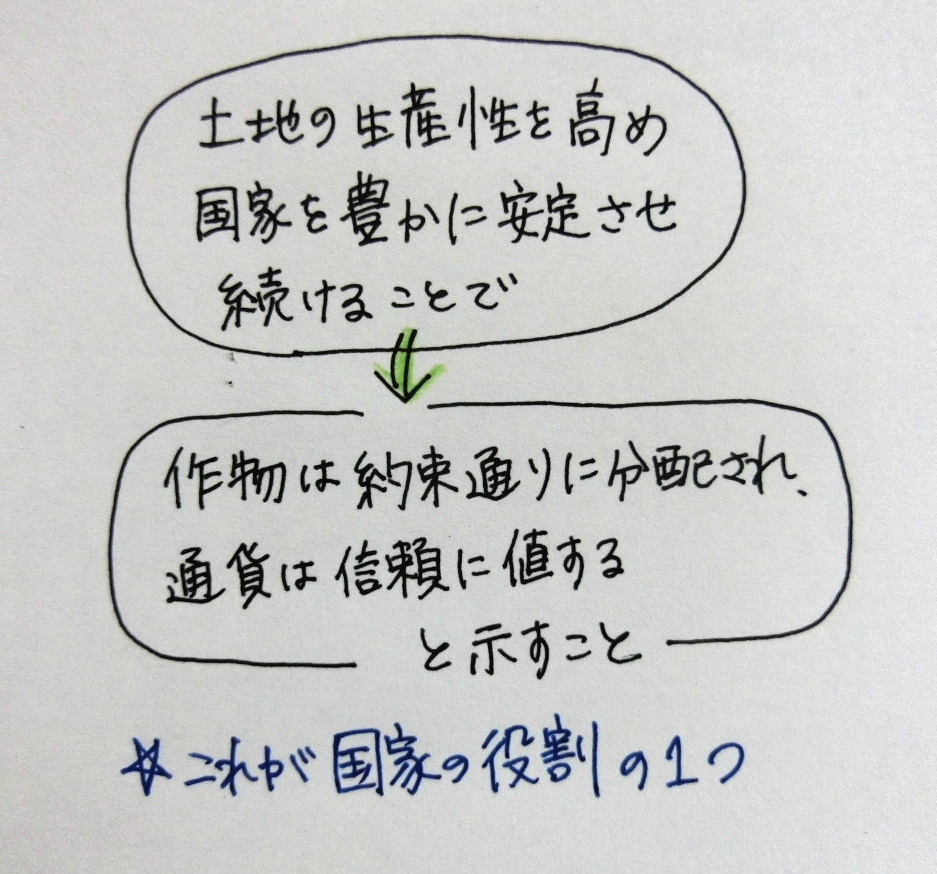 土地の生産性を高め
国家を豊かに安定させ
続けることで
作物は約束通りに分配され、
通貨は信頼に値する
と示すこと
☆これが国家の役割の1つ